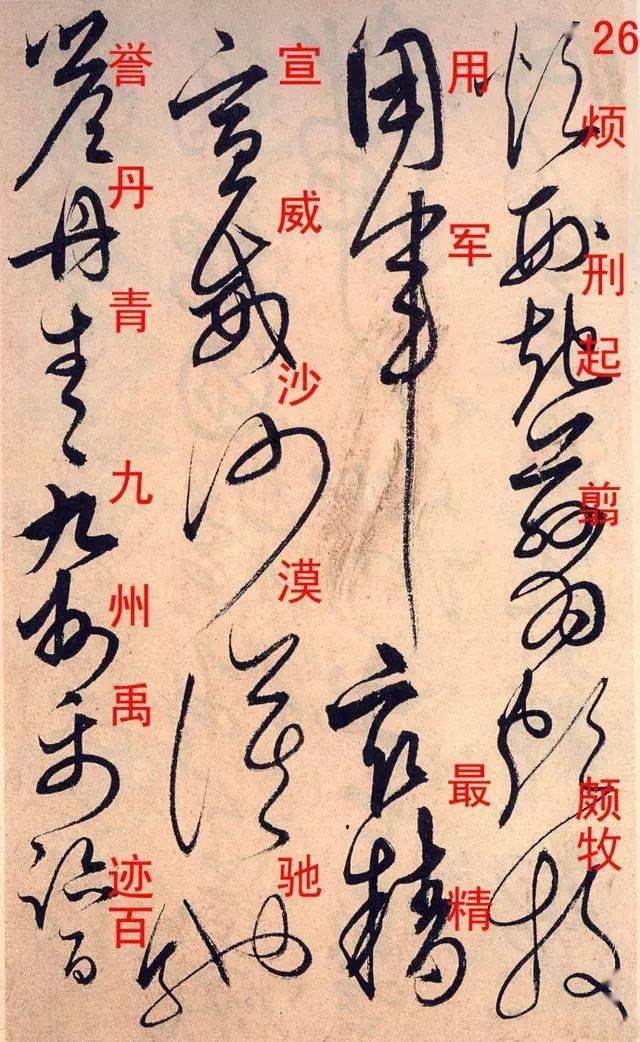 26
烦刑起翦颇牧
用军最精
宣威沙漠驰
誉丹青九州禹迹百